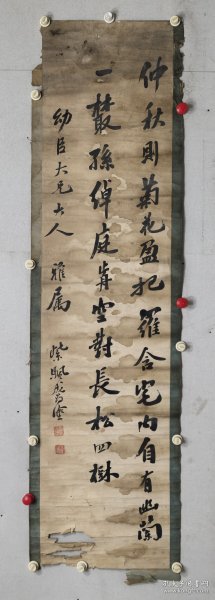 仲秋則菊花盈把羅含宅內自有幽蘭
一叢孫綽庭前空對長松四樹
幼臣大兄大人
雅属